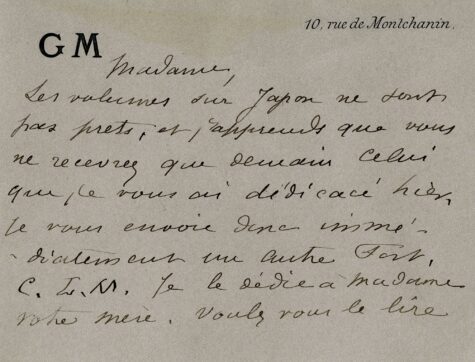 10, rue de Montchanin.
GM
Madame,
Les volumes sur Japon ne sont
pas prets, et j'apprends que vous
ne recevrez que demain celui
que je vous ai dédicacé hier,
je vous envoie donc immé-
-diatement un autre Fort.
C. L. M. Je le dédie à madame
votre mère. Voulez vous le lire